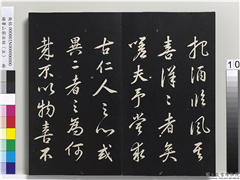 把酒臨風其
喜洋〻者矣
嗟夫予嘗求
古仁人之心或
異二者之為何
哉不以物喜不
10